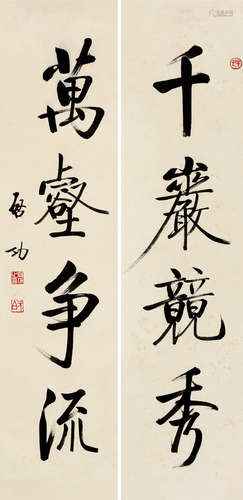 千巖競秀
萬壑争流
啓功